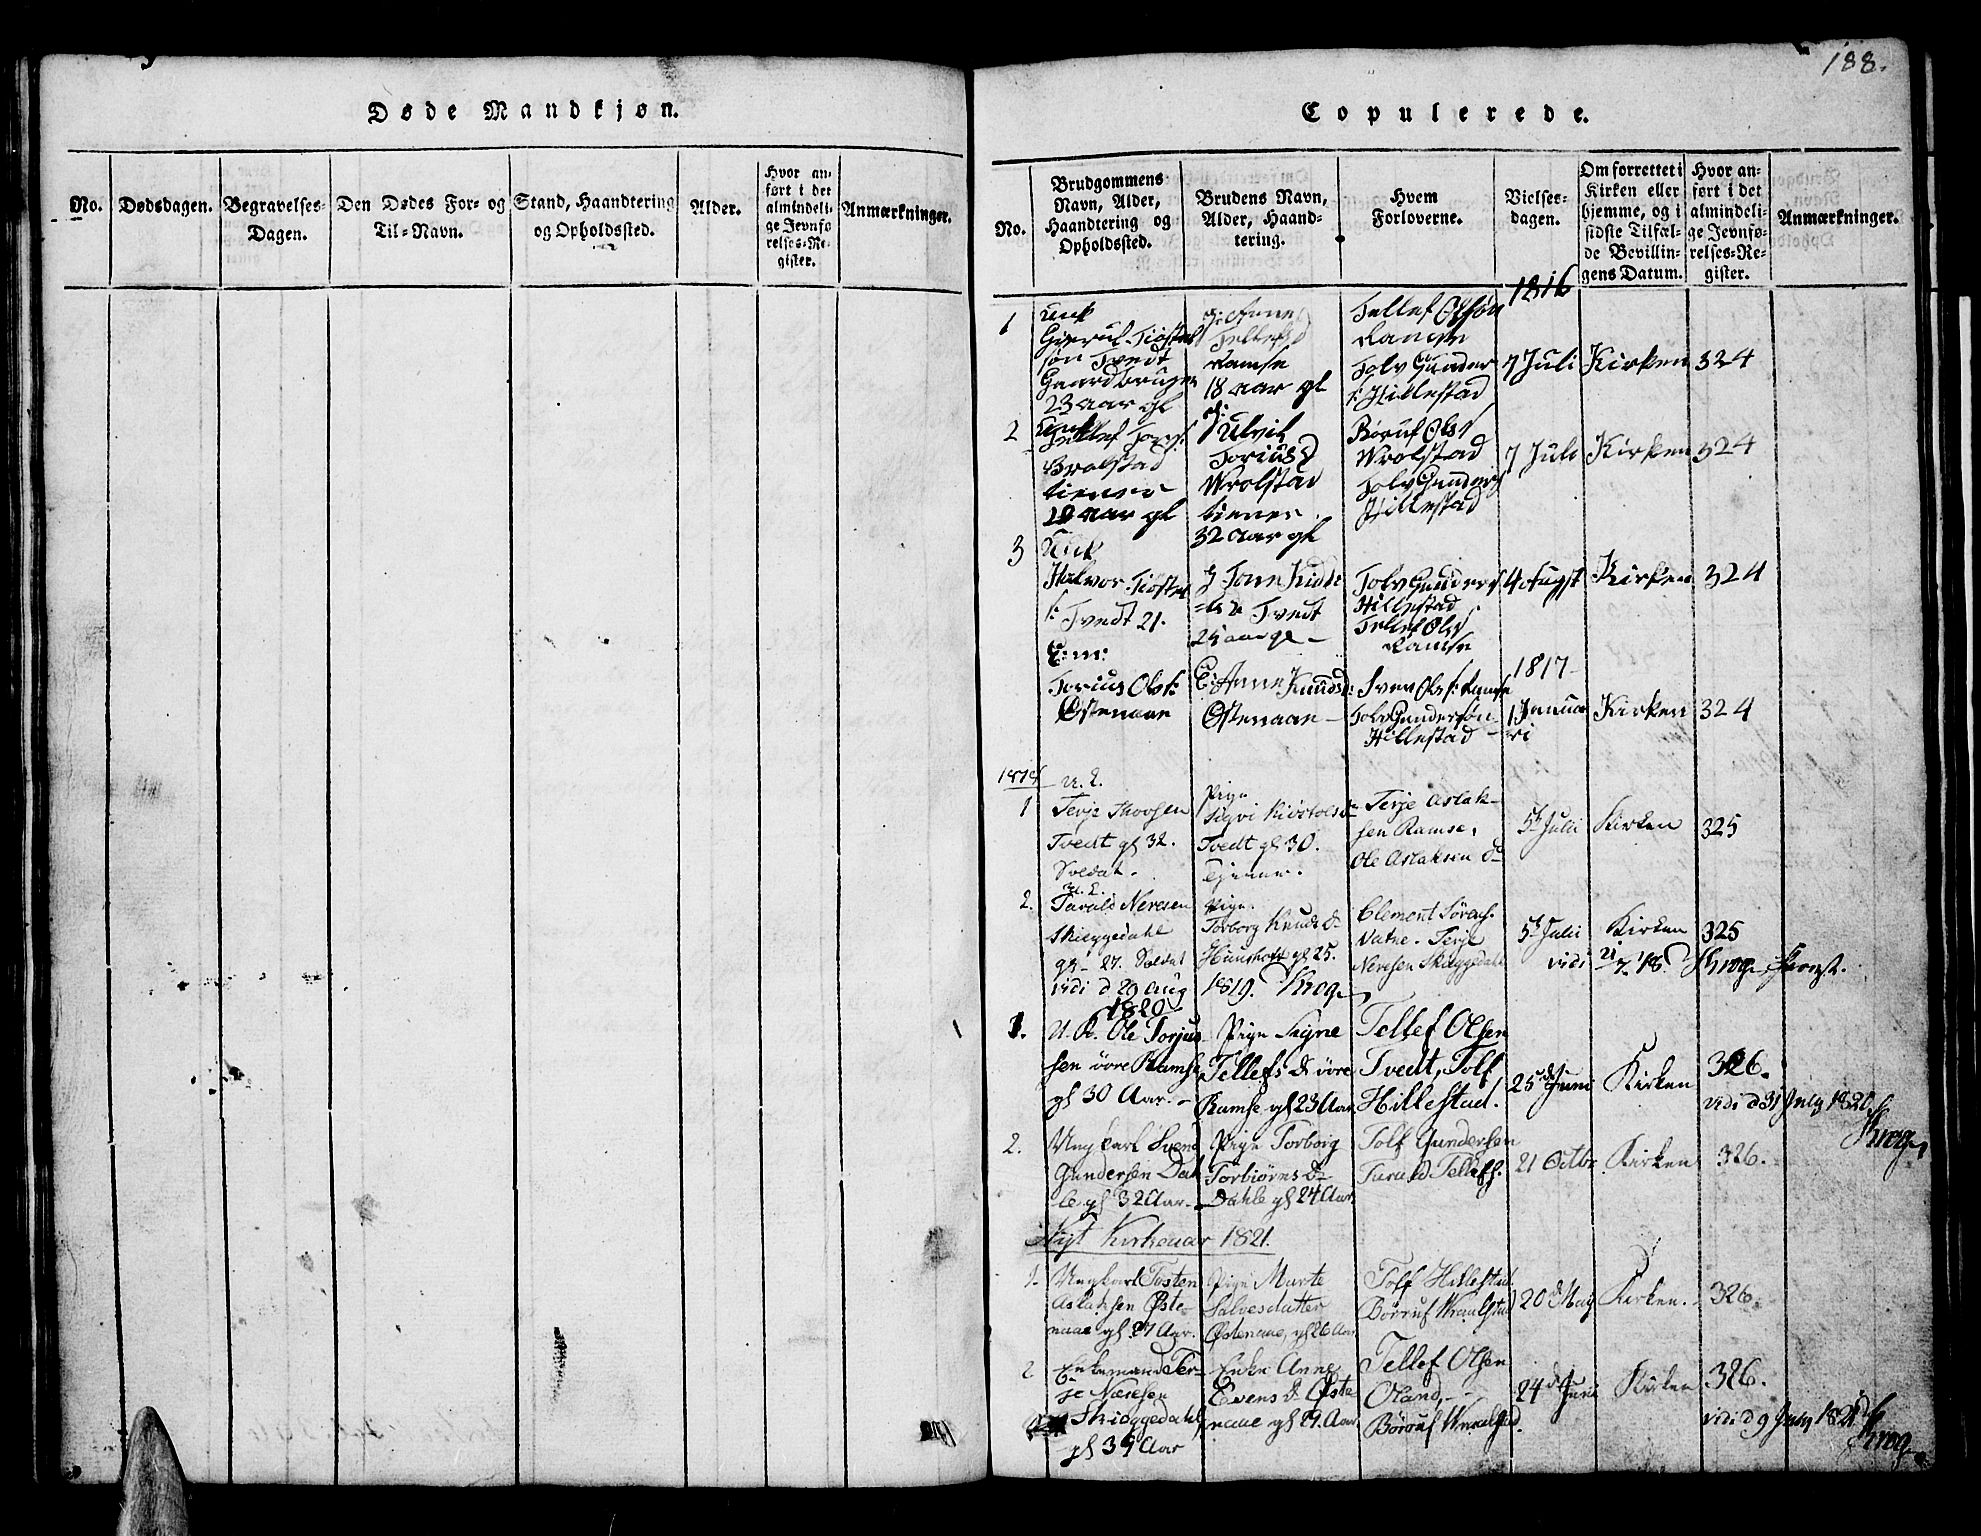 188.
Døde Mandkjøn.
No.
Dødsdagen.
Begravelses-
Dagen.
Den Dødes For- og
Til-Navn.
Stand, Haandtering
og Opholdssted.
Alder.
Hvor an-
ført i det
almindeli-
ge Jevnfø
relses-Re-
gister.
Anmærkninger.
Copulerede.
No.
Brudgommens
Navn, Alder,
Haandtering og
Opholdssted.
Brudens Navn,
Alder, Haand-
tering.
Hvem
Forloverne.
Vielses-
dagen.
Om forrettet i
Kirken eller
hjemme, og i
sidste Tilfæl-
de Bevillin-
gens Datum.
Hvor an-
ført i det
almindeli-
ge Jevnfø-
relses-Re-
gister.
Anmærkninger.
1816
1
søn Tvedt
Gaardbruger
23 aar gl
p: Anne
Tellefsd
Ramse
18 aar gl
Tellef Olsøn
Ramse
Tolv Gunder
s: Hillestad
7 Juli
Kirken
324
2
tiener
aar gl
Torjusd
Wrolstad
tiener
32 aar gl
Børuf Ols
Wrolstad
Tolv Gunders
Hillestad
7 Juli
Kirken
324
3
Halvor
s: Tvedt 21.
Tvedt
aar gl
Tolv Gunders
Hillestad
Tellef Ols
Ramse
4 Augst
Kirken
324
E:m:
Torjus Ols:
Østenaae
E: Anne Knudsd:
Østenaae
Sven Ols: Ramse
Tolv Gundersøn
Hillestad
1817
1 Januar
ri
Kirken
324
1818
1
u. C.
Terje
Tvedt gl 32.
Soldat.
Pige
Sigri Kiøstolsd
Tvedt gl 30.
Tjener.
Terje Aslak-
sen Ramse,
Ole Aslaksen do
5t Juli
Kirken
325
2.
u. C.
Tarald Neresen
Skieggedahl
gl 27. Soldat
Pige.
Torborg Knudsd
gl 25.
Clemont
Vatne. Terje
Neresen Skieggedahl
5t Juli
Kirken
325
vidi 21/7 18. Krog
vidi d 29 Aug 1819. Krog
1820
1.
U. K. Ole Torjus
sen øvre Ramse
gl 30 Aar.
Pige Signe
Tellefs D. øvre
Ramse gl 23 Aar
Tellef Olsen
Tvedt, Tolf
Hillestad.
25 d Juni
Kirken
326.
vidi d 31 July 1820
Krog
2.
Ungkarl Svend
Gundersen Dah
le gl 32 Aar.
Pige Torborg
Torbiørns D
Dahle gl 24 Aar
Tolf Gundersen
Tarald Tellefs.
21 Octbr
Kirken
326.
Nyt Kirkeaar 1821.
1.
Ungkarl Tosten
Aslaksen Øste-
naae gl 27 Aar.
Pige Marte
Salvesdatter
Østenaae, gl 26 Aar
Tolf Hillestad
Børruf Wraalstad
20 d May
Kirken.
326.
2
Enkemand Ter-
je Næresen
Skieggedahl,
gl 39 Aar
Enke Anne
Evens D. Øste
naae gl 29. Aar
Tellef Olsen
Oland,
Børruf Wraalstad.
24 d Juni
Kirken
326.
vidi d 9 July 1821
Krog